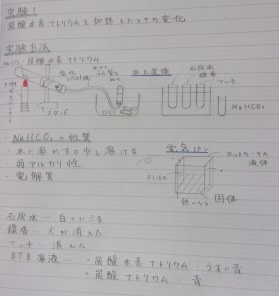 実験1
炭酸水素ナトリウムを加熱したときの変化
実験方法
炭酸水素ナトリウム
水上置換
石灰水
線香
マッチ
NaHCO₃
・NaHCO₃の性質
・水に溶けにくい少し溶ける
・弱アルカリ性
・電解質
電気パン
ホットケーキの液体
固体
石灰水…白くにごる
線香…火が消えた
マッチ…消えた
BTB溶液…・炭酸水素ナトリウム:うすい青
・炭酸ナトリウム:青